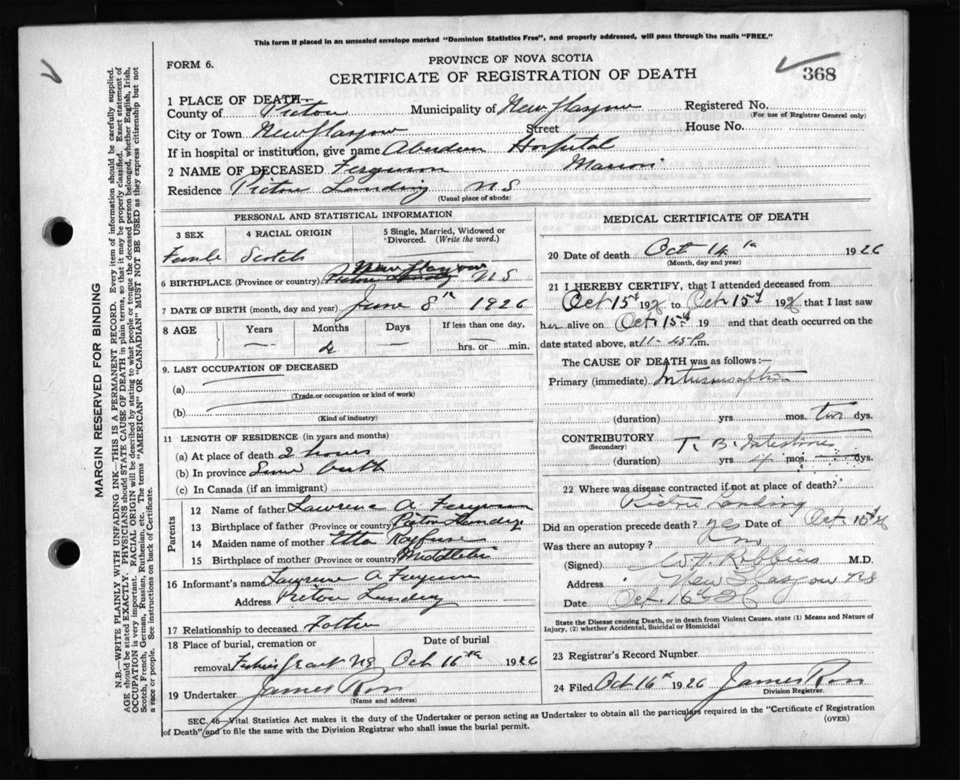 This form if placed in an unsealed envelope marked "Dominion Statistics Free", and properly addressed, will pass through the mails "FREE."
FORM 6.
PROVINCE OF NOVA SCOTIA
CERTIFICATE OF REGISTRATION OF DEATH
368
1 PLACE OF DEATH—
County of Pictou Municipality of New Glasgow Registered No.
(For use of Registrar General only)
City or Town New Glasgow Street House No.
If in hospital or institution, give name Aberdeen Hospital
2 NAME OF DECEASED Ferguson Marion
Residence Pictou Landing N S
(Usual place of abode)
PERSONAL AND STATISTICAL INFORMATION
3 SEX 4 RACIAL ORIGIN 5 Single, Married, Widowed or Divorced. (Write the word.)
Female Scotch
6 BIRTHPLACE (Province or country) New Glasgow N S
7 DATE OF BIRTH (month, day and year) June 8th 1926
8 AGE Years Months Days If less than one day,
— 4 — hrs. or min.
9. LAST OCCUPATION OF DECEASED
(a)
(Trade or occupation or kind of work)
(b)
(Kind of industry)
11 LENGTH OF RESIDENCE (in years and months)
(a) At place of death 2 hours
(b) In province Since birth
(c) In Canada (if an immigrant)
Parents
12 Name of father Lawrence A. Ferguson
13 Birthplace of father (Province or country) Pictou Landing
14 Maiden name of mother Etta
15 Birthplace of mother (Province or country)
16 Informant's name Lawrence A Ferguson
Address Pictou Landing
17 Relationship to deceased Father
18 Place of burial, cremation or removal Date of burial
Fishers Grant NS Oct 16th 1926
19 Undertaker James Ross
(Name and address)
MEDICAL CERTIFICATE OF DEATH
20 Date of death Oct 14th 1926
(Month, day and year)
21 I HEREBY CERTIFY, that I attended deceased from
Oct 15th 1926 to Oct 15th 1926 that I last saw
her alive on Oct 15th 19 and that death occurred on the
date stated above, at 11-45 P.m.
The CAUSE OF DEATH was as follows:—
Primary (immediate) Intussusception
(duration) yrs mos. two dys.
CONTRIBUTORY T. B. Intestines
(Secondary)
(duration) yrs mos dys.
22 Where was disease contracted if not at place of death?
Pictou Landing
Did an operation precede death? yes Date of Oct. 15th 26
Was there an autopsy?
(Signed) M.D.
Address New Glasgow NS
Date Oct. 16th 26
State the Disease causing Death, or in death from Violent Causes, state (1) Means and Nature of Injury, (2) whether Accidental, Suicidal or Homicidal
23 Registrar's Record Number
24 Filed Oct 16th 1926 James Ross
Division Registrar.
SEC. 46—Vital Statistics Act makes it the duty of the Undertaker or person acting as Undertaker to obtain all the particulars required in the "Certificate of Registration
of Death" and to file the same with the Division Registrar who shall issue the burial permit.
(OVER)
MARGIN RESERVED FOR BINDING
N.B.—WRITE PLAINLY WITH UNFADING INK—THIS IS A PERMANENT RECORD. Every item of information should be carefully supplied.
AGE should be stated EXACTLY. PHYSICIANS should STATE CAUSE OF DEATH in plain terms, so that it may be properly classified. Exact statement of
OCCUPATION is very important. RACIAL ORIGIN will be described by stating to what people or tongue the deceased person belonged, whether English, Irish,
Scotch, French, German, Russian, Ruthenian, etc. The terms "AMERICAN" OR "CANADIAN" MUST NOT BE USED as they express citizenship but not
a race or people. See instructions on back of Certificate.